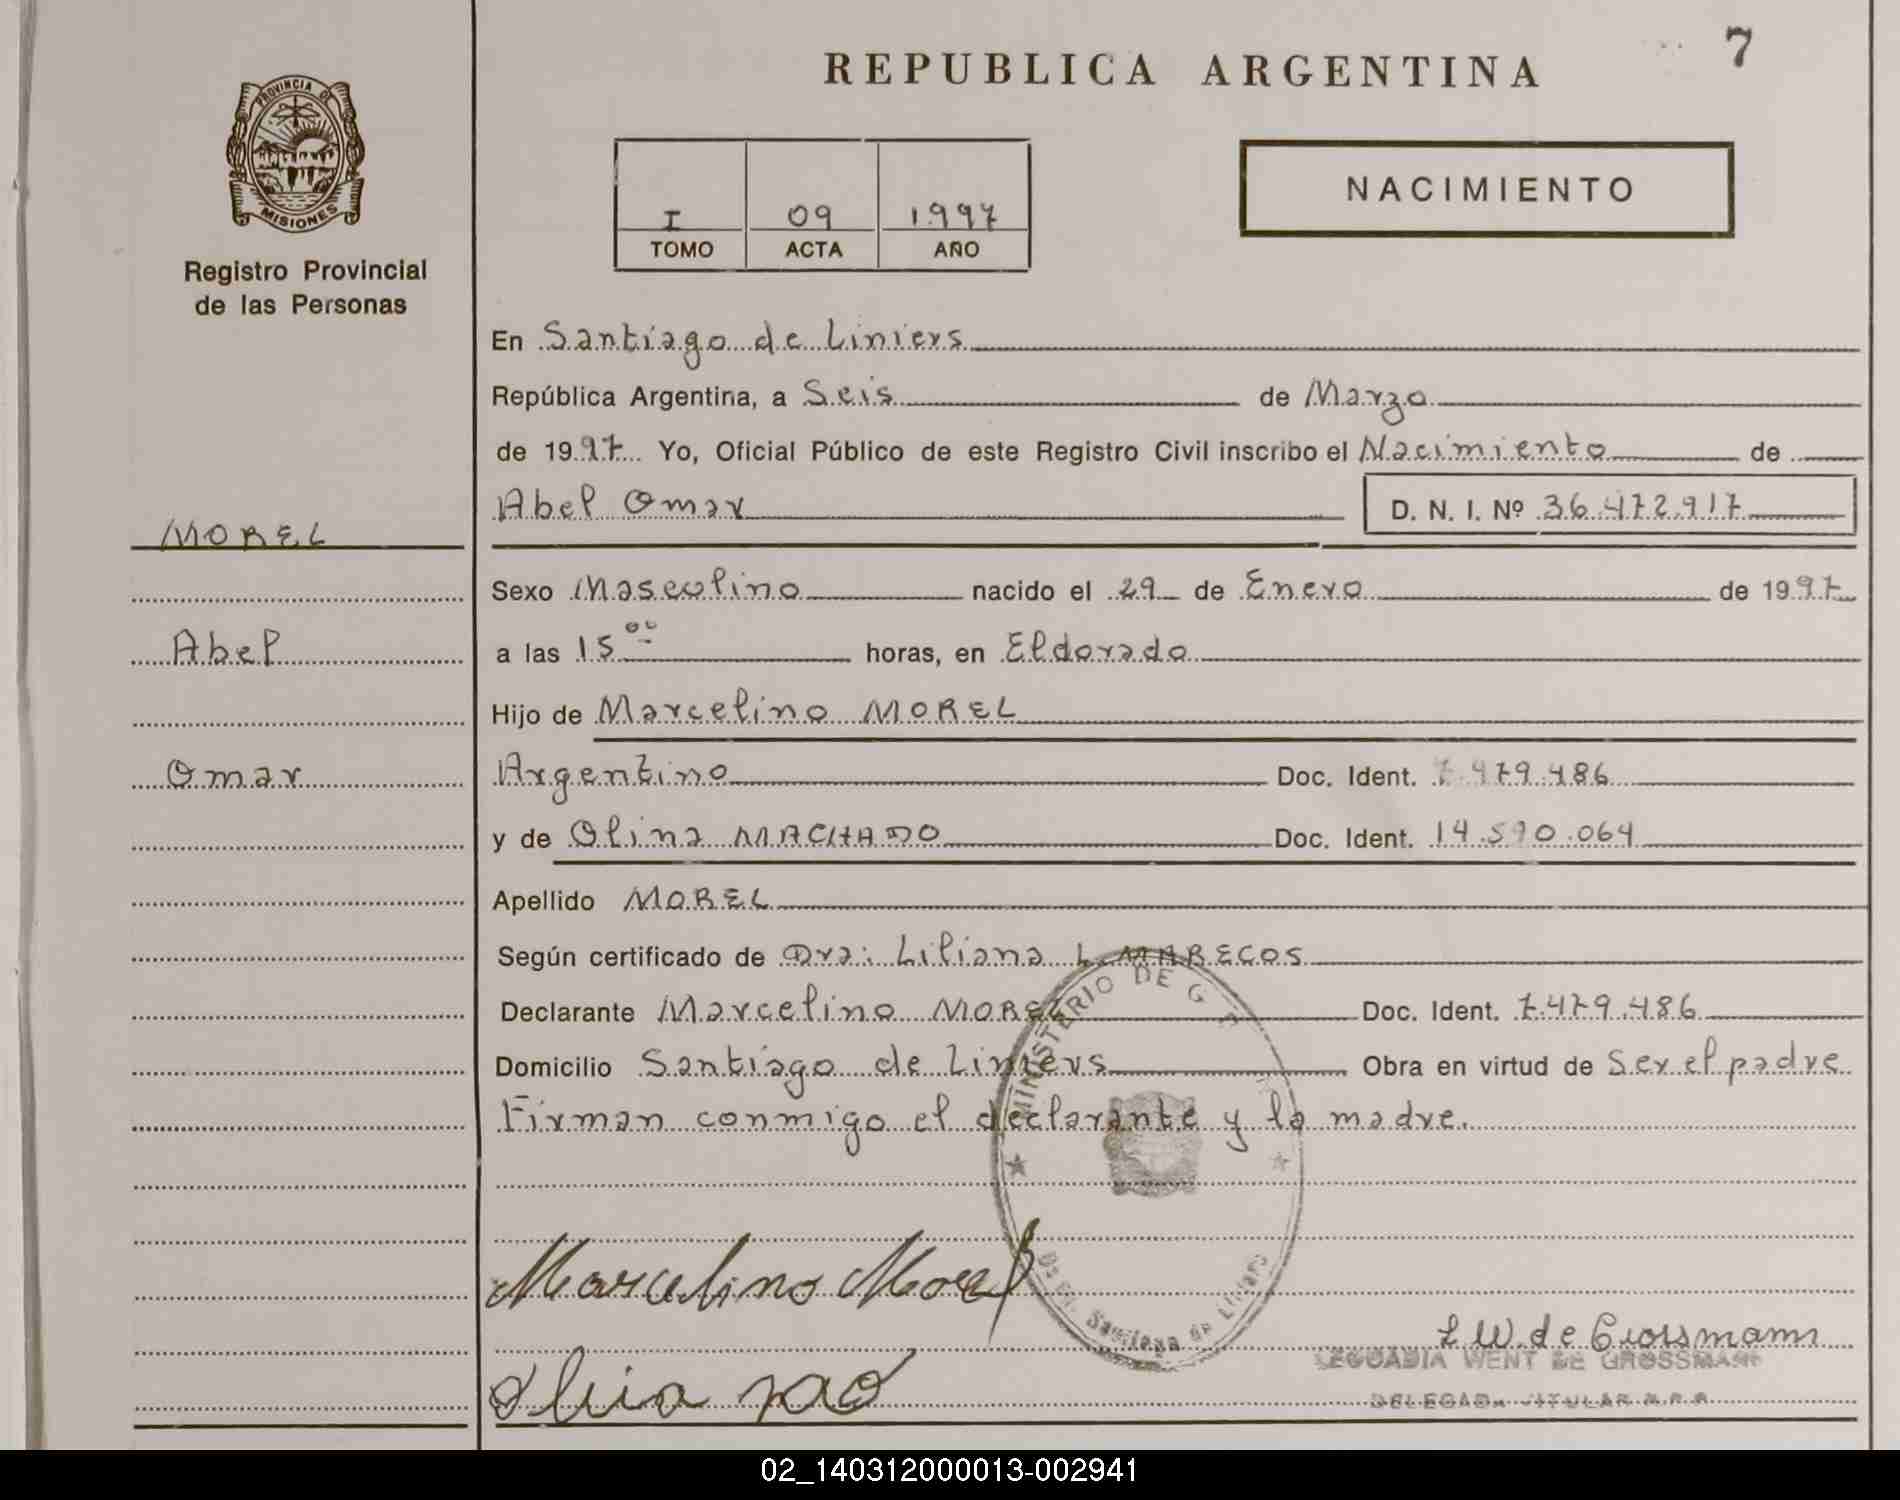 7
REPUBLICA ARGENTINA
PROVINCIA DE
MISIONES
Registro Provincial
de las Personas
I 09 1997
TOMO ACTA AÑO
NACIMIENTO
En Santiago de Liniers
República Argentina, a Seis de Marzo
de 1997 Yo, Oficial Público de este Registro Civil inscribo el Nacimiento de
Abel Omar D. N. I. Nº 36.472.917
MOREL
Sexo Masculino nacido el 29 de Enero de 1997
Abel
a las 15 00 horas, en Eldorado
Hijo de Marcelino MOREL
Omar
Argentino Doc. Ident. 7.479.486
y de Olina MACHADO Doc. Ident. 14.590.064
Apellido MOREL
Según certificado de Dra: Liliana L. MARECOS
Declarante Marcelino MOREL Doc. Ident. 7.479.486
Domicilio Santiago de Liniers Obra en virtud de Ser el padre
Firman conmigo el declarante y la madre.
MINISTERIO DE G
Santiago de Liniers
Marcelino Morel
L W. de Grossmann
LEOCADIA WENT DE GROSSMANN
DELEGADA TITULAR R.P.P.
02_140312000013-002941